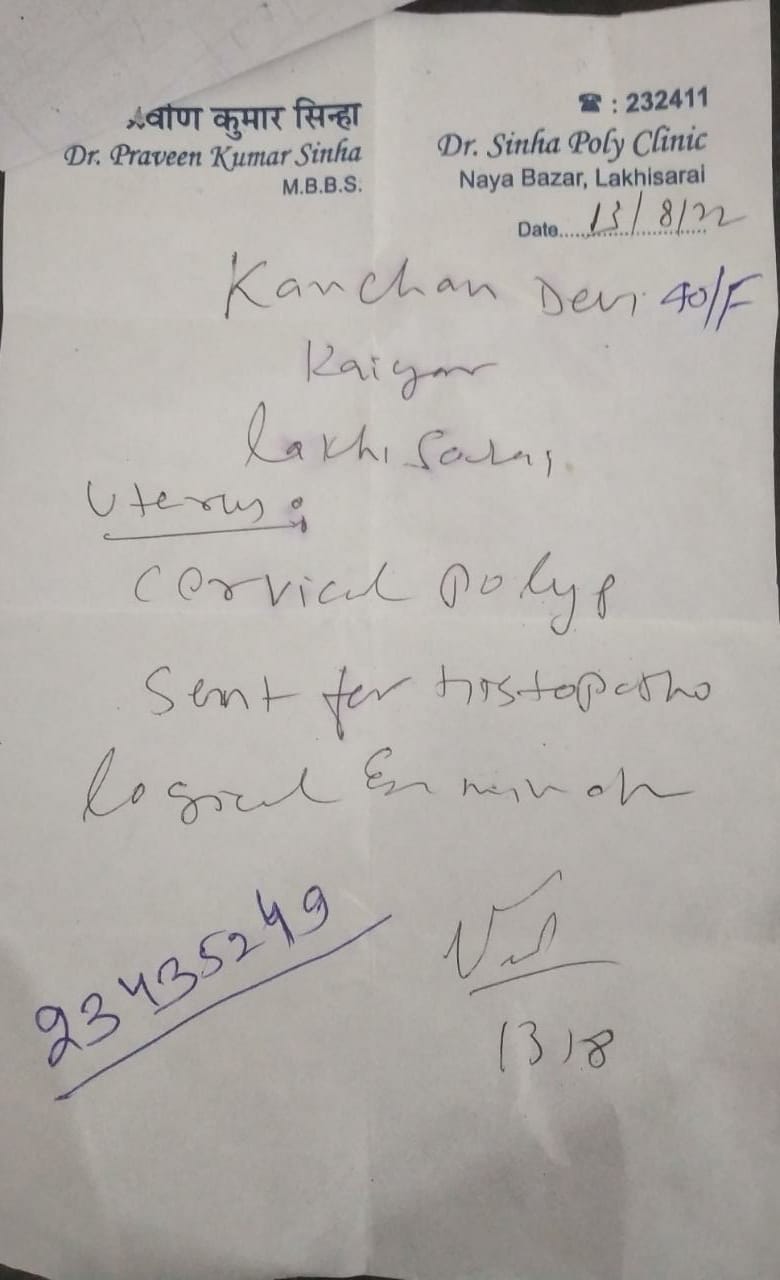 वीण कुमार सिन्हा
Dr. Praveen Kumar Sinha
M.B.B.S.
☎ : 232411
Dr. Sinha Poly Clinic
Naya Bazar, Lakhisarai
Date.....13/8/22
Kanchan Devi 40/F
Lakhisarai
Uterus :
Cervical Polyp
Sent for Histopatho
logical
23435249
13/8